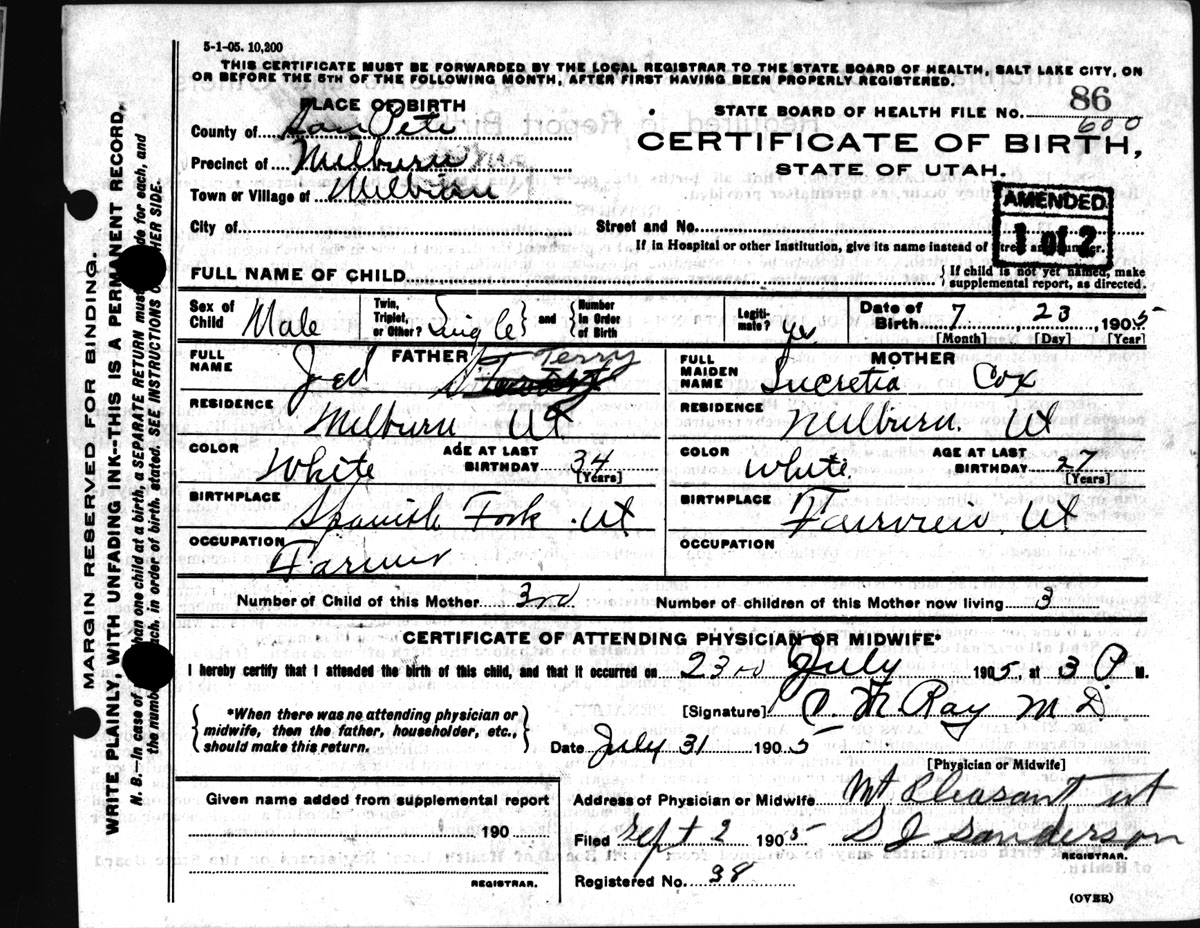 5-1-05. 10,200
THIS CERTIFICATE MUST BE FORWARDED BY THE LOCAL REGISTRAR TO THE STATE BOARD OF HEALTH, SALT LAKE CITY, ON
OR BEFORE THE 5TH OF THE FOLLOWING MONTH, AFTER FIRST HAVING BEEN PROPERLY REGISTERED.
PLACE OF BIRTH
STATE BOARD OF HEALTH FILE NO. 86
600
County of San Pete
CERTIFICATE OF BIRTH,
Precinct of Milburn
STATE OF UTAH.
Town or Village of Milburn
AMENDED
1 of 2
City of Street and No.
If in Hospital or other Institution, give its name instead of street and number.
FULL NAME OF CHILD } If child is not yet named, make
supplemental report, as directed.
Sex of Child Male Twin, Triplet, or Other? Single and Number in Order of Birth Legitimate? yes Date of Birth 7 23 1905
[Month] [Day] [Year]
FULL NAME FATHER Jed Terry
FULL MAIDEN NAME MOTHER Lucretia Cox
RESIDENCE Milburn Ut
RESIDENCE Milburn. Ut
COLOR White AGE AT LAST BIRTHDAY 34 [Years]
COLOR White. AGE AT LAST BIRTHDAY 27 [Years]
BIRTHPLACE Spanish Fork Ut
BIRTHPLACE Fairview Ut
OCCUPATION Farmer
OCCUPATION
Number of Child of this Mother 3rd Number of children of this Mother now living 3
CERTIFICATE OF ATTENDING PHYSICIAN OR MIDWIFE*
I hereby certify that I attended the birth of this child, and that it occurred on 23rd July 1905, at 3 P M.
*When there was no attending physician or
midwife, then the father, householder, etc.,
should make this return.
[Signature] Ray M D.
Date July 31 1905
[Physician or Midwife]
Given name added from supplemental report
190
REGISTRAR.
Address of Physician or Midwife Mt. Pleasant ut
Filed Sept 2 1905 S J Sanderson
REGISTRAR.
Registered No. 38
(OVER)
MARGIN RESERVED FOR BINDING.
WRITE PLAINLY, WITH UNFADING INK--THIS IS A PERMANENT RECORD.
N. B.—In case of than one child at a birth, a SEPARATE RETURN must de for each, and
the numb ach, in order of birth, stated. SEE INSTRUCTIONS O HER SIDE.